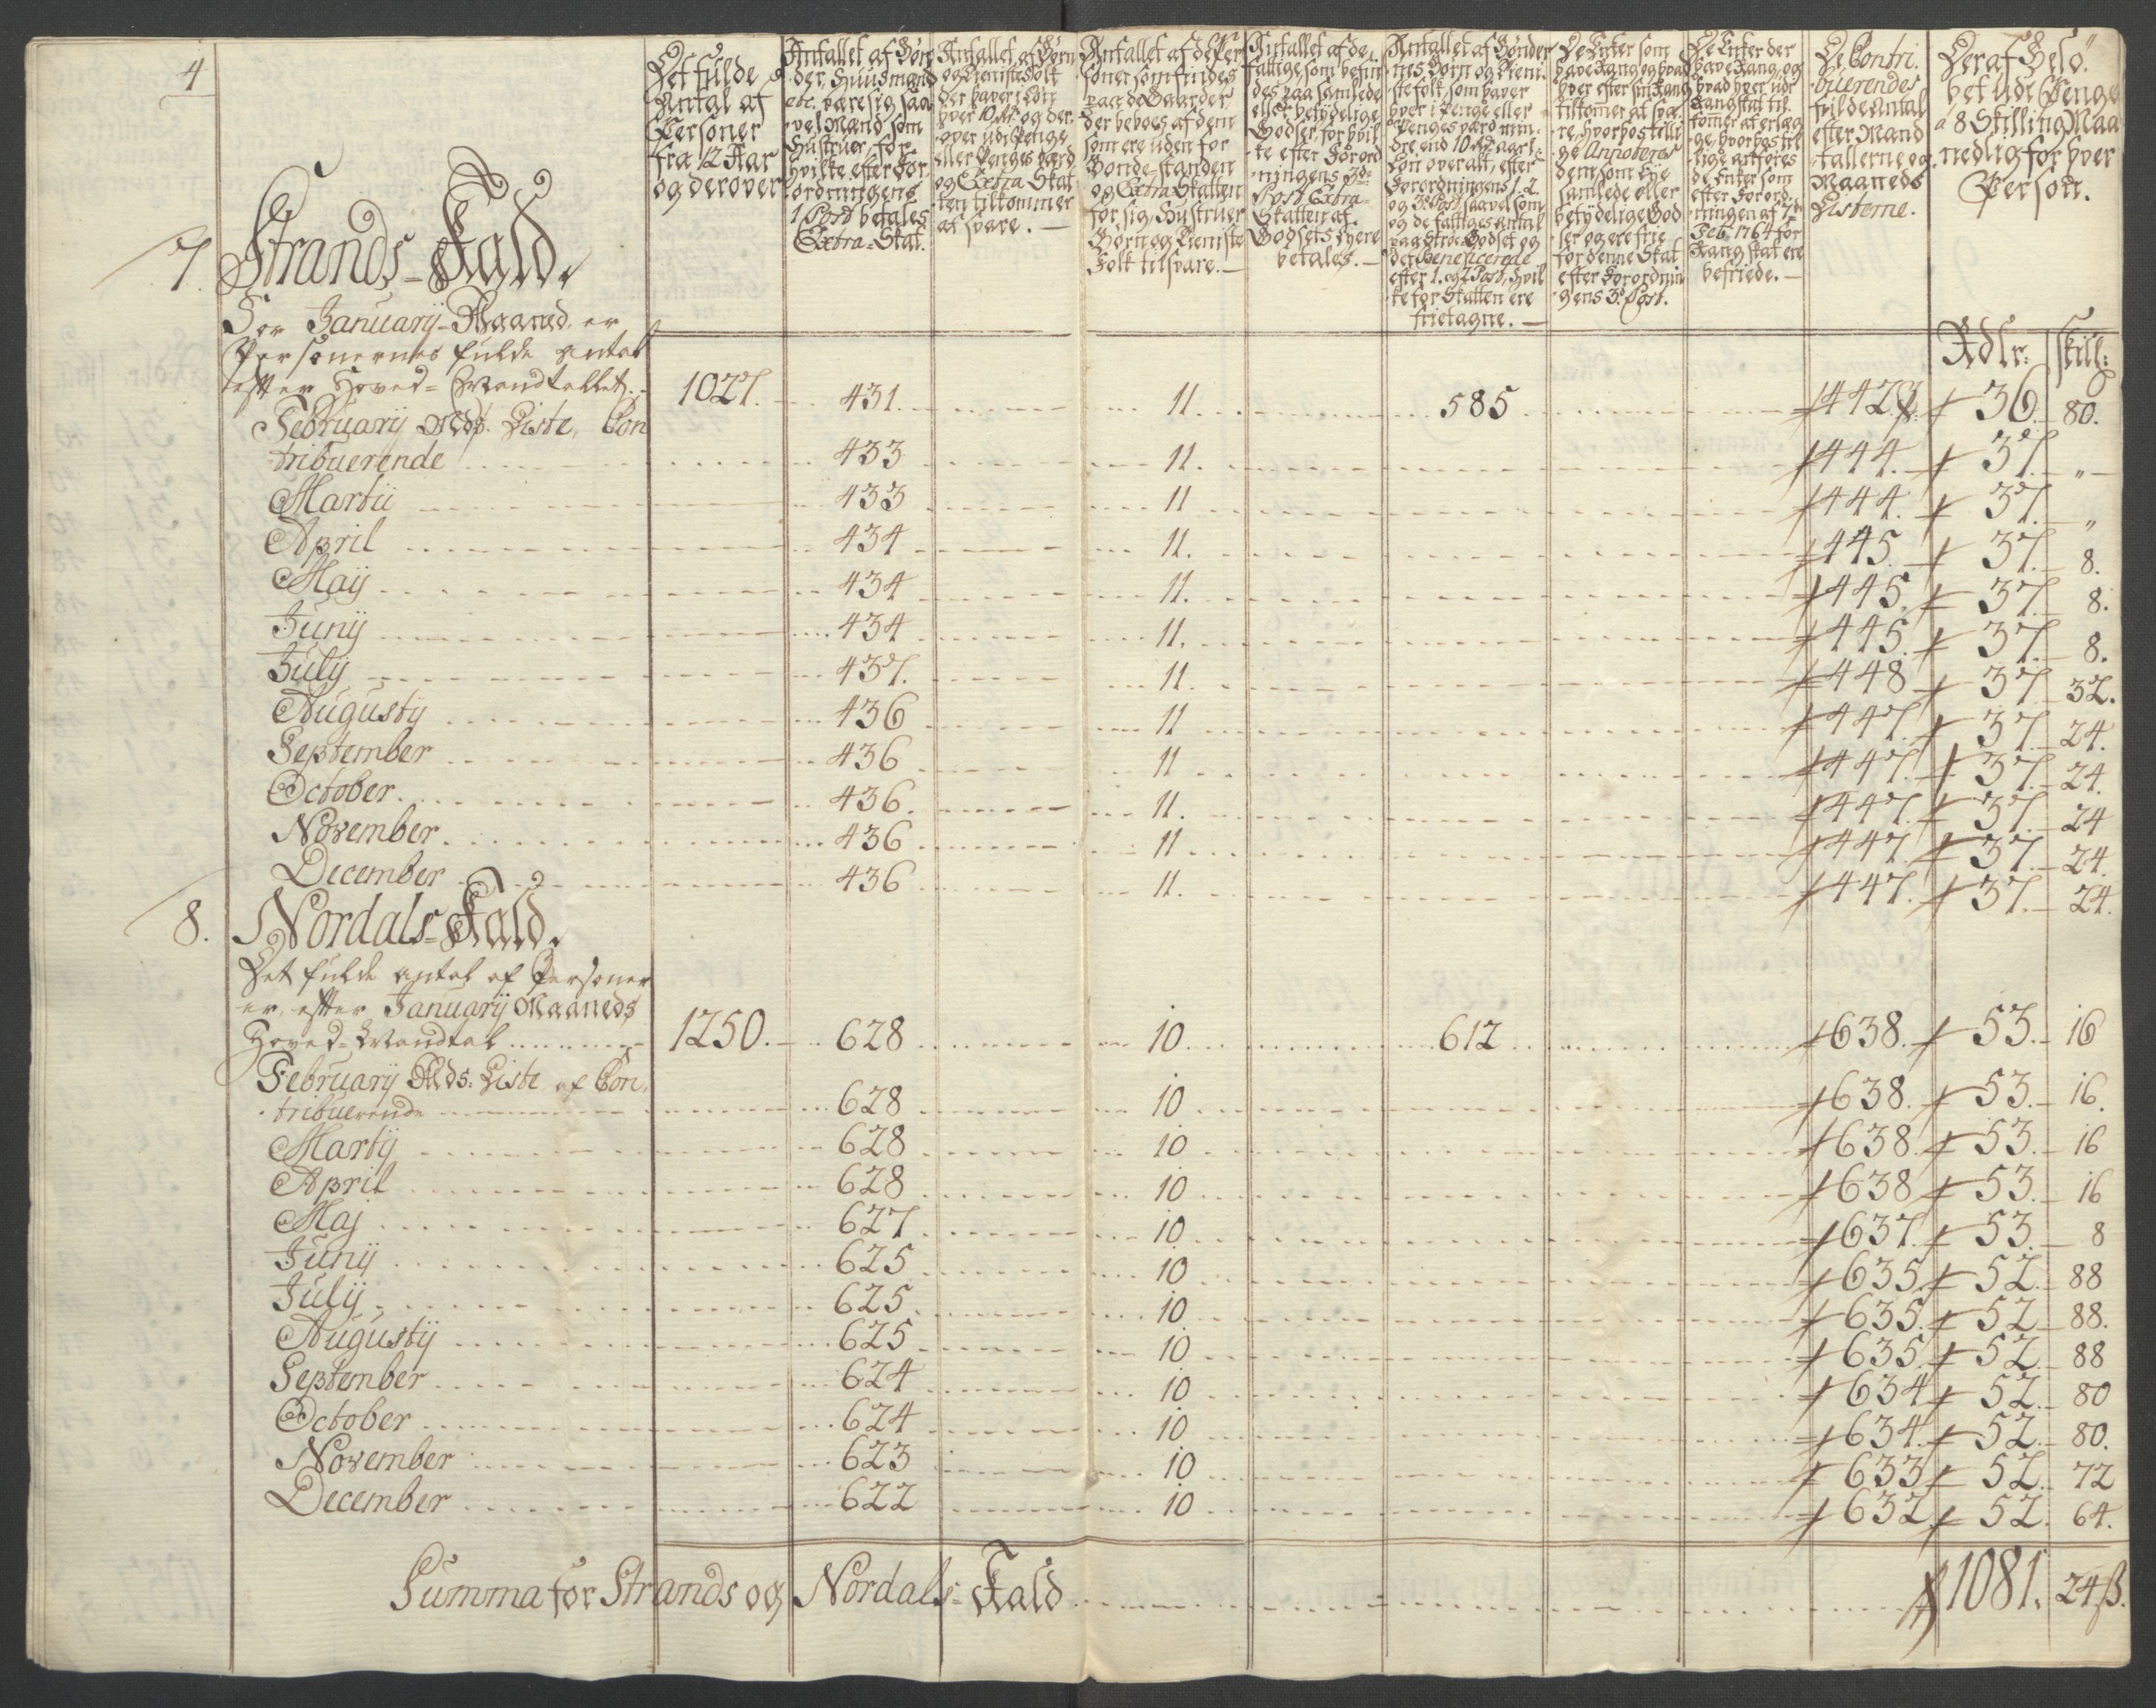 4
Det fulde
Antal af
Personer
fra 12 Aar
og derover
Antallet af Bøn
der, Huusmænd
etc. være sig saa
vel Mænd som
Hustruer, for
hvilke efter For
ordningens
1. Post betales
Extra-Skat.
Antallet af Børn
og Tieniste Folk
der haver i Løn
hver 10 Rdr. og der
over udi Penge
eller Penges værd
og Extra Skat
ten tilkommer
at svare.
Antallet af de Per
soner som findes
paa de Gaarder
der beboes af dem
som ere uden for
Bonde-standen
og Extra Skatten
for sig, Hustruer
Børn og Tieniste
Folk tilsvare.
Antallet af de
fattige, som befin
des paa samlede
eller betydelige
Godser, for hvil
ke efter Forord
ningens 3de
Post Extra
Skatten af
Godsets Eyere
betales.
Antallet af Bønder
nes Børn og Tieni
ste folk, som haver
hver i Penge eller
Penges værd min
dre end 10 Rdr. aarl:
Løn overalt, efter
Forordningens 1. 2.
og 3. Post, saavel som
og de fattiges Antal
paa Strøe-Godset og
det Beneficerede
efter 1. og 2 Post, hvil
ke for Skatten ere
frietagne.
De Enker som
have Rang og hvad
hver efter sin Rang
tilkommer at sva
re, hvorhos tilli
ge Annoteres
dem som Eye
samlede eller
betydelige God
ser og ere frie
for denne Skat
efter Forordnin
gens 3. Post.
De Enker der
have Rang, og
hvad hver udi
Rangskat til
kommer at erlæg
ge, hvorhos til
lige anføres
de Enker som
efter Forord
ningen af 7de
Feb. 1764 for
Rangskat ere
befriede.
De Contri
buerendes
fulde Antal
efter Mand
tallerne og
Maaneds
Listerne.
Deraf Belø
bet udi Penge
a 8 Skilling Maa
nedlig for hver
Person.
7. Strands-Fald.
Rdlr: skill:
For January-Maaned, er
Personernes fulde antal
efter Hoved-Mandtallet 1027. 431. 11. 585 442 36. 80.
February Mds. Liste, Con
tribuerende 433 11. 444. 37. "
Martii 433 11 444. 37. "
April 434 11. 445. 37. 8.
Maij 434 11. 445. 37. 8.
Junij 434 11. 445. 37. 8.
Julij 437. 11. 448 37 32.
Augustij 436 11 447. 37. 24.
September 436 11 447. 37. 24.
October. 436. 11. 447. 37. 24
November 436 11 447. 37. 24.
December 436 11. 447. 37. 24.
8. Nordals-Fald.
Det fulde antal af Personer
er, efter Januarij Maaneds
Hoved-Mandtal 1250. 628 10. 612 638. 53. 16
Februarij Mds: Liste af Con
tribuerende 628 10 638. 53. 16.
Martij 628 10 638. 53. 16
April 628 10 638 53. 16
Maj 627 10 637. 53. 8
Junij 625 10 635 52. 88
Julij 625. 10 635. 52 88.
Augustij 625 10 635 52. 88
September 624 10 634 52. 80
October 624 10 634. 52. 80.
November 623 10 633 52. 72
December 622 10 632 52. 64.
Summa for Strands og Nordals-Fald 1081. 24 ß.